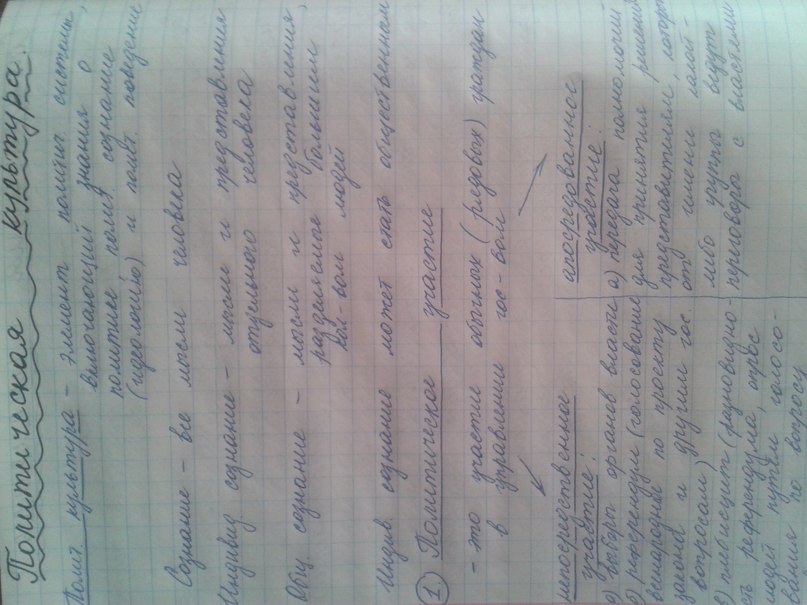 Политическая культура.
Полит. культура – элемент политич. системы,
включающий знания о
политике, полит. сознание
(идеологию) и полит. поведение
Сознание – все мысли человека
Индивид. сознание – мысли и представления
отдельного человека
Общ. сознание – мысли и представления,
разделяемое большим
кол-вом людей
Индив. сознание может стать общественном
① Политическое участие
– это участие обычных (рядовых) граждан
в управлении гос-вом
непосредственное
участие:
а) выборы органов власти
б) референдум (голосование
всенародная по проекту
закона и другим гос.
вопросам)
в) плебисцит (разновидно-
сть референдума, опрос
людей путём голосо-
вания по вопросу
апосредованное
участие:
а) передача полномочий
для принятия решения
представителям, которые
от имени какой-
либо группы ведут
переговоры с властями